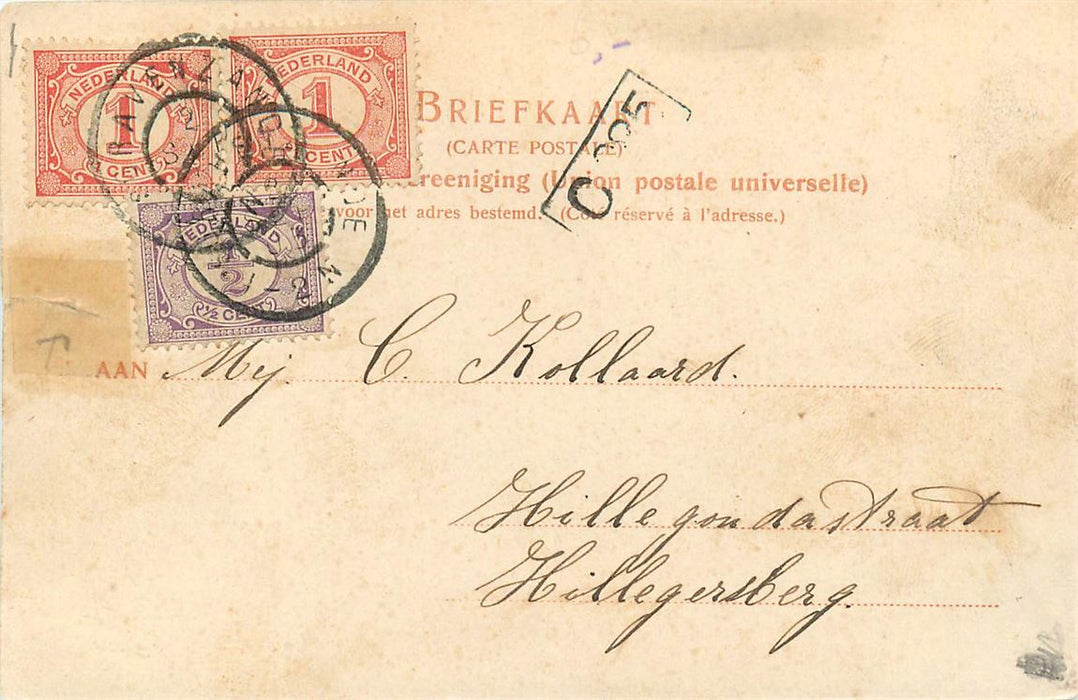 NEDERLAND
1
CENT
NEDERLAND
1
CENT
NEDERLAND
1/2
½ CENT
BRIEFKAART
(CARTE POSTALE)
(Union postale universelle)
voor het adres bestemd. (Côté réservé à l'adresse.)
AAN Mej. C. Kollaard.
Hillegondastraat
Hillegersberg.